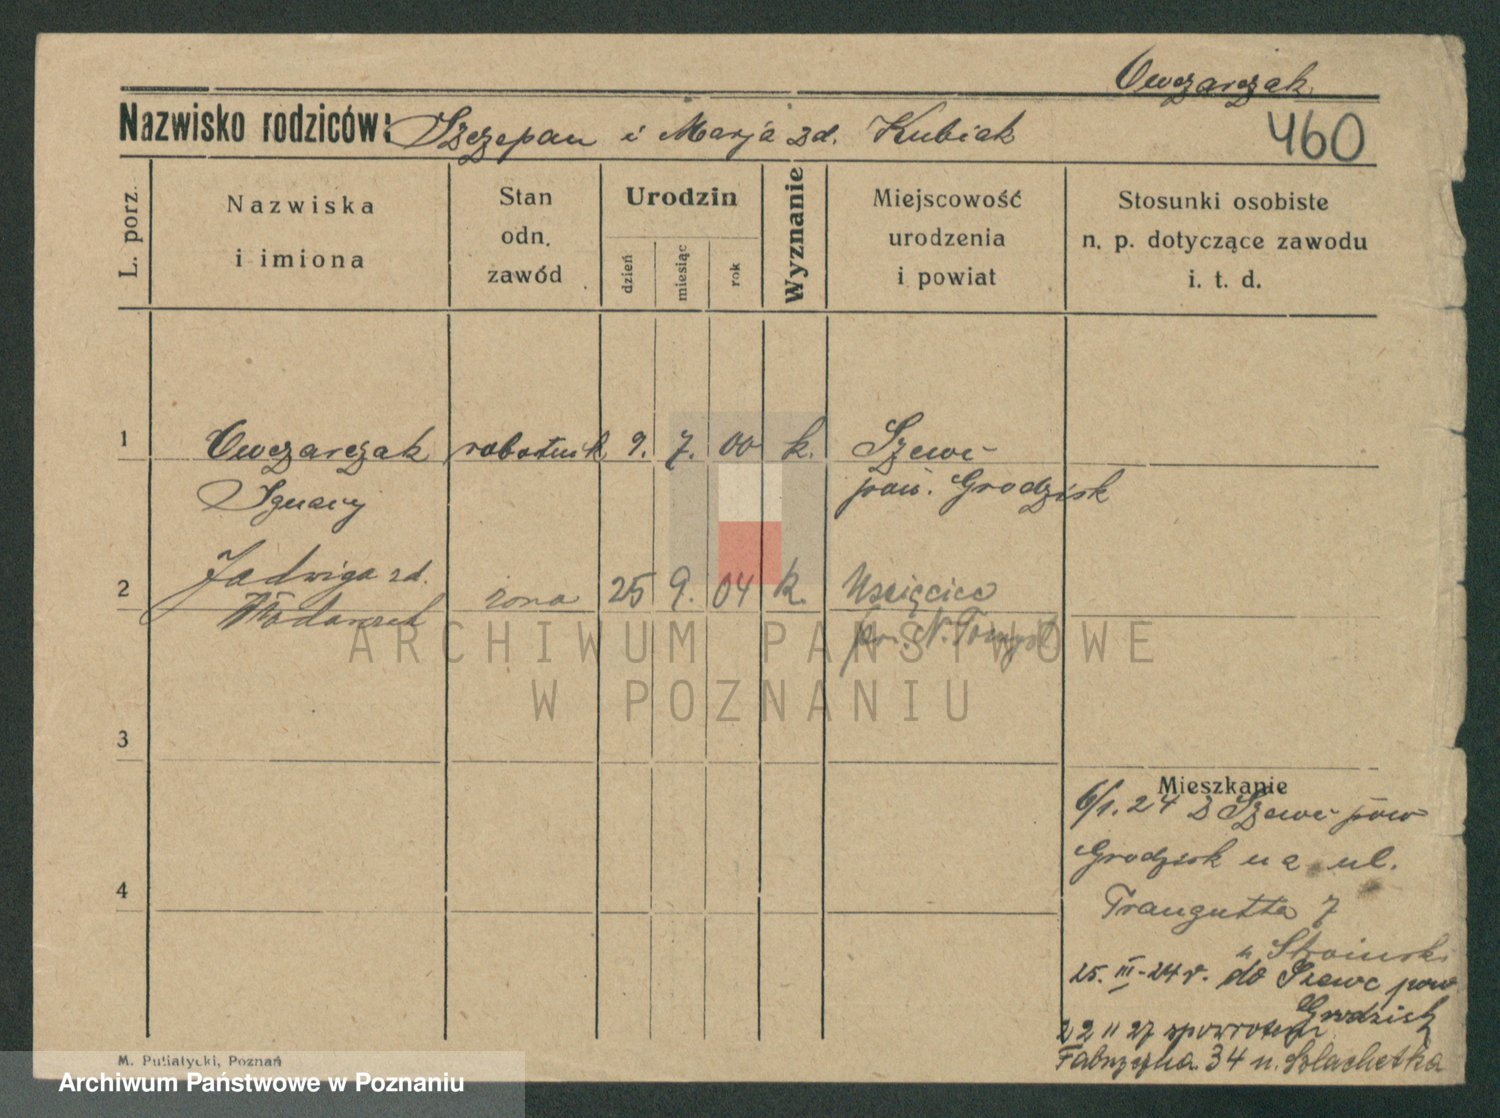 Owczarczak
Nazwisko rodziców: Szczepan i Marja zd. Kubiak
460
L. porz.
Nazwiska
i imiona
Stan
odn.
zawód
Urodzin
dzień
miesiąc
rok
Wyznanie
Miejscowość
urodzenia
i powiat
Stosunki osobiste
n. p. dotyczące zawodu
i. t. d.
1 Owczarczak robotnik 9. 7. 00 k. Szewc
Ignacy pow. Grodzisk
2 Jadwiga zd. żona 25 9. 04 k. Uścięcice
Włodarczak pow. N. Tomyśl
ARCHIWUM PAŃSTWOWE
W POZNANIU
3
Mieszkanie
6/1.24 z Szewc pow
Grodzisk na ul.
4
Traugutta 7
u Stoinski
25. III-24 r. do Szewc pow
Grodzisk
22 II 27 spowrotem
Fabryczna 34 u. Szlachetka
M. Putiatycki, Poznań
Archiwum Państwowe w Poznaniu